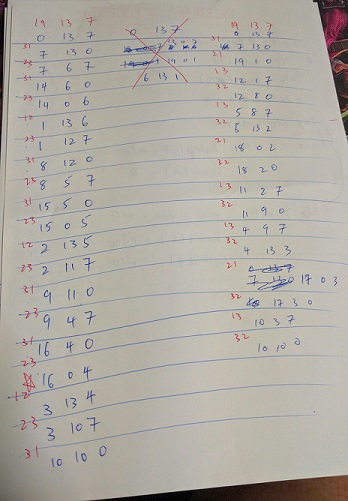 19 13 7
0 13 7
31
7 13 0
23
7 6 7
31
14 6 0
23
14 0 6
12
1 13 6
23
1 12 7
31
8 12 0
23
8 5 7
31
15 5 0
23
15 0 5
12
2 13 5
23
2 11 7
31
9 11 0
23
9 4 7
31
16 4 0
23
16 0 4
12
3 13 4
23
3 10 7
31
10 10 0
0 13 7
6 13 1
19 13 7
0 13 7
31
7 13 0
21
19 1 0
13
12 1 7
32
12 8 0
13
5 8 7
32
5 13 2
21
18 0 2
32
18 2 0
13
11 2 7
32
11 9 0
13
4 9 7
32
4 13 3
21
17 0 3
32
17 3 0
13
10 3 7
32
10 10 0